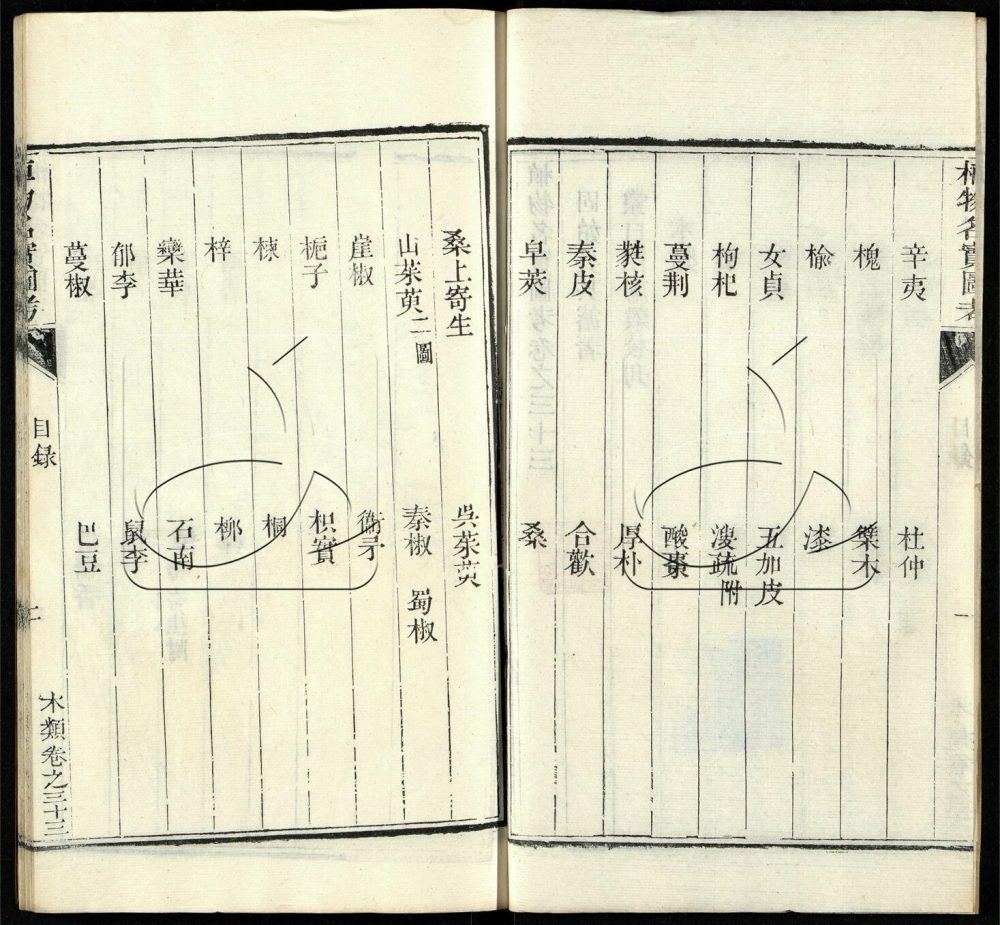 植物名實圖考
目録
一
辛夷 杜仲
槐 檗木
榆 漆
女貞 五加皮
枸杞 溲疏附
蔓荆 酸棗
蕤核 厚朴
秦皮 合歡
皁莢 桑
桑上寄生 吳茱萸
山茱萸二圖 秦椒 蜀椒
崖椒 衛矛
梔子 枳實
楝 桐
梓 柳
欒華 石南
郁李 鼠李
蔓椒 巴豆
目録
二
木類卷之三十三